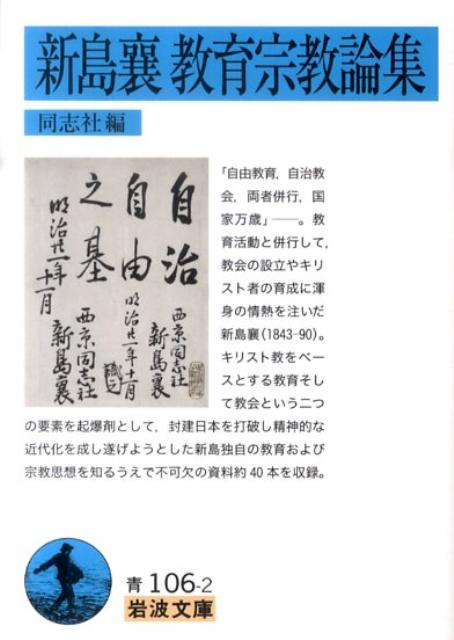 新島襄 教育宗教論集
同志社編
自治
西京同志社
新島襄
自由
明治廿一年十一月
之基
西京同志社
新島襄
明治廿一年
十一月
「自由教育，自治教
会，両者併行，国
家万歳」――。教
育活動と併行して，
教会の設立やキリ
スト者の育成に渾
身の情熱を注いだ
新島襄(1843-90)。
キリスト教をベー
スとする教育そし
て教会という二つ
の要素を起爆剤として，封建日本を打破し精神的な
近代化を成し遂げようとした新島独自の教育および
宗教思想を知るうえで不可欠の資料約40本を収録。
青 106-2
岩波文庫